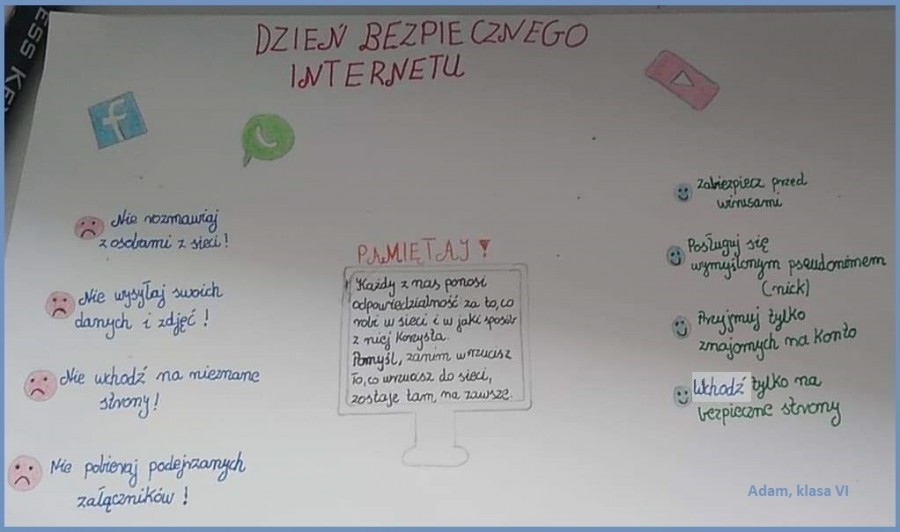 ESS KEY
DZIEŃ BEZPIECZNEGO
INTERNETU
f
Nie rozmawiaj
z osobami z sieci!
Nie wysyłaj swoich
danych i zdjęć!
Nie wchodź na nieznane
strony!
Nie pobieraj podejrzanych
załączników!
PAMIĘTAJ!
Każdy z nas ponosi
odpowiedzialność za to, co
robi w sieci i w jaki sposób
z niej korzysta.
Pomyśl, zanim wrzucisz
To, co wrzucasz do sieci,
zostaje tam, na zawsze.
Zabezpiecz przed
wirusami
Posługuj się
wymyślonym pseudonimem
(nick)
Przyjmuj tylko
znajomych na konto
Wchodź tylko na
bezpieczne strony
Adam, klasa VI